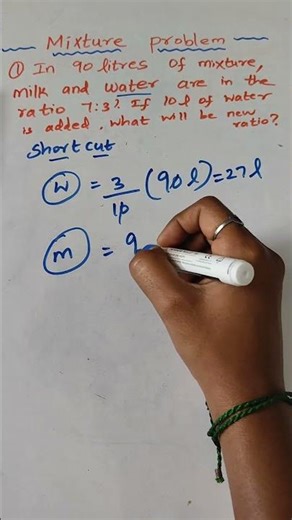 Mixture problem
① In 90 litres of mixture,
milk and water are in the
ratio 7:3? If 10l of water
is added. what will be new
ratio?
Short cut
W = 3/10 (90l) = 27l
m = 9